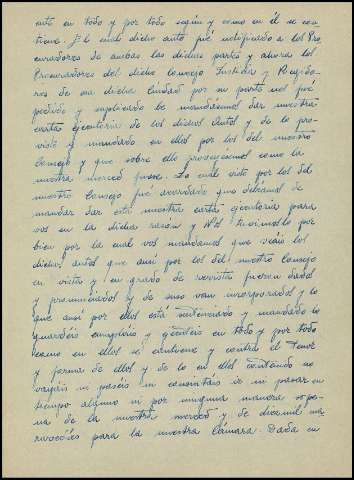 auto en todo y por todo según y como en él se con
tiene. El cual dicho auto fué notificado a los Pro
curadores de ambas las dichas partes y ahora los
Procuradores del dicho Concejo Justicia y Regido
res de esa dicha Ciudad por su parte nos fué
pedido y suplicado le mandásemos dar nuestra
carta ejecutoria de los dichos Autos y de lo pro
visto y mandado en ellos por los del nuestro
Consejo y que sobre ello proveyésemos como la
nuestra merced fuese. Lo cual visto por los del
nuestro Consejo fué acordado que debíamos de
mandar dar esta nuestra carta ejecutoria para
vos en la dicha razón y Nos tuvimoslo por
bien por la cual vos mandamos que veáis los
dichos autos que así por los del nuestro Consejo
en vista y en grado de revista fueron dados
y pronunciados y de suso van incorporados y lo
que así por ellos está sentenciado y mandado lo
guardéis cumpláis y ejecuteis en todo y por todo
como en ellos se contiene y contra el tenor
y forma de ellos y de lo en ellos contenido no
vayáis ni paséis ni consintáis ir ni pasar en
tiempo alguno ni por ninguna manera so pe
na de la nuestra merced y de diezmil ma
ravedíes para la nuestra Cámara. Dada en